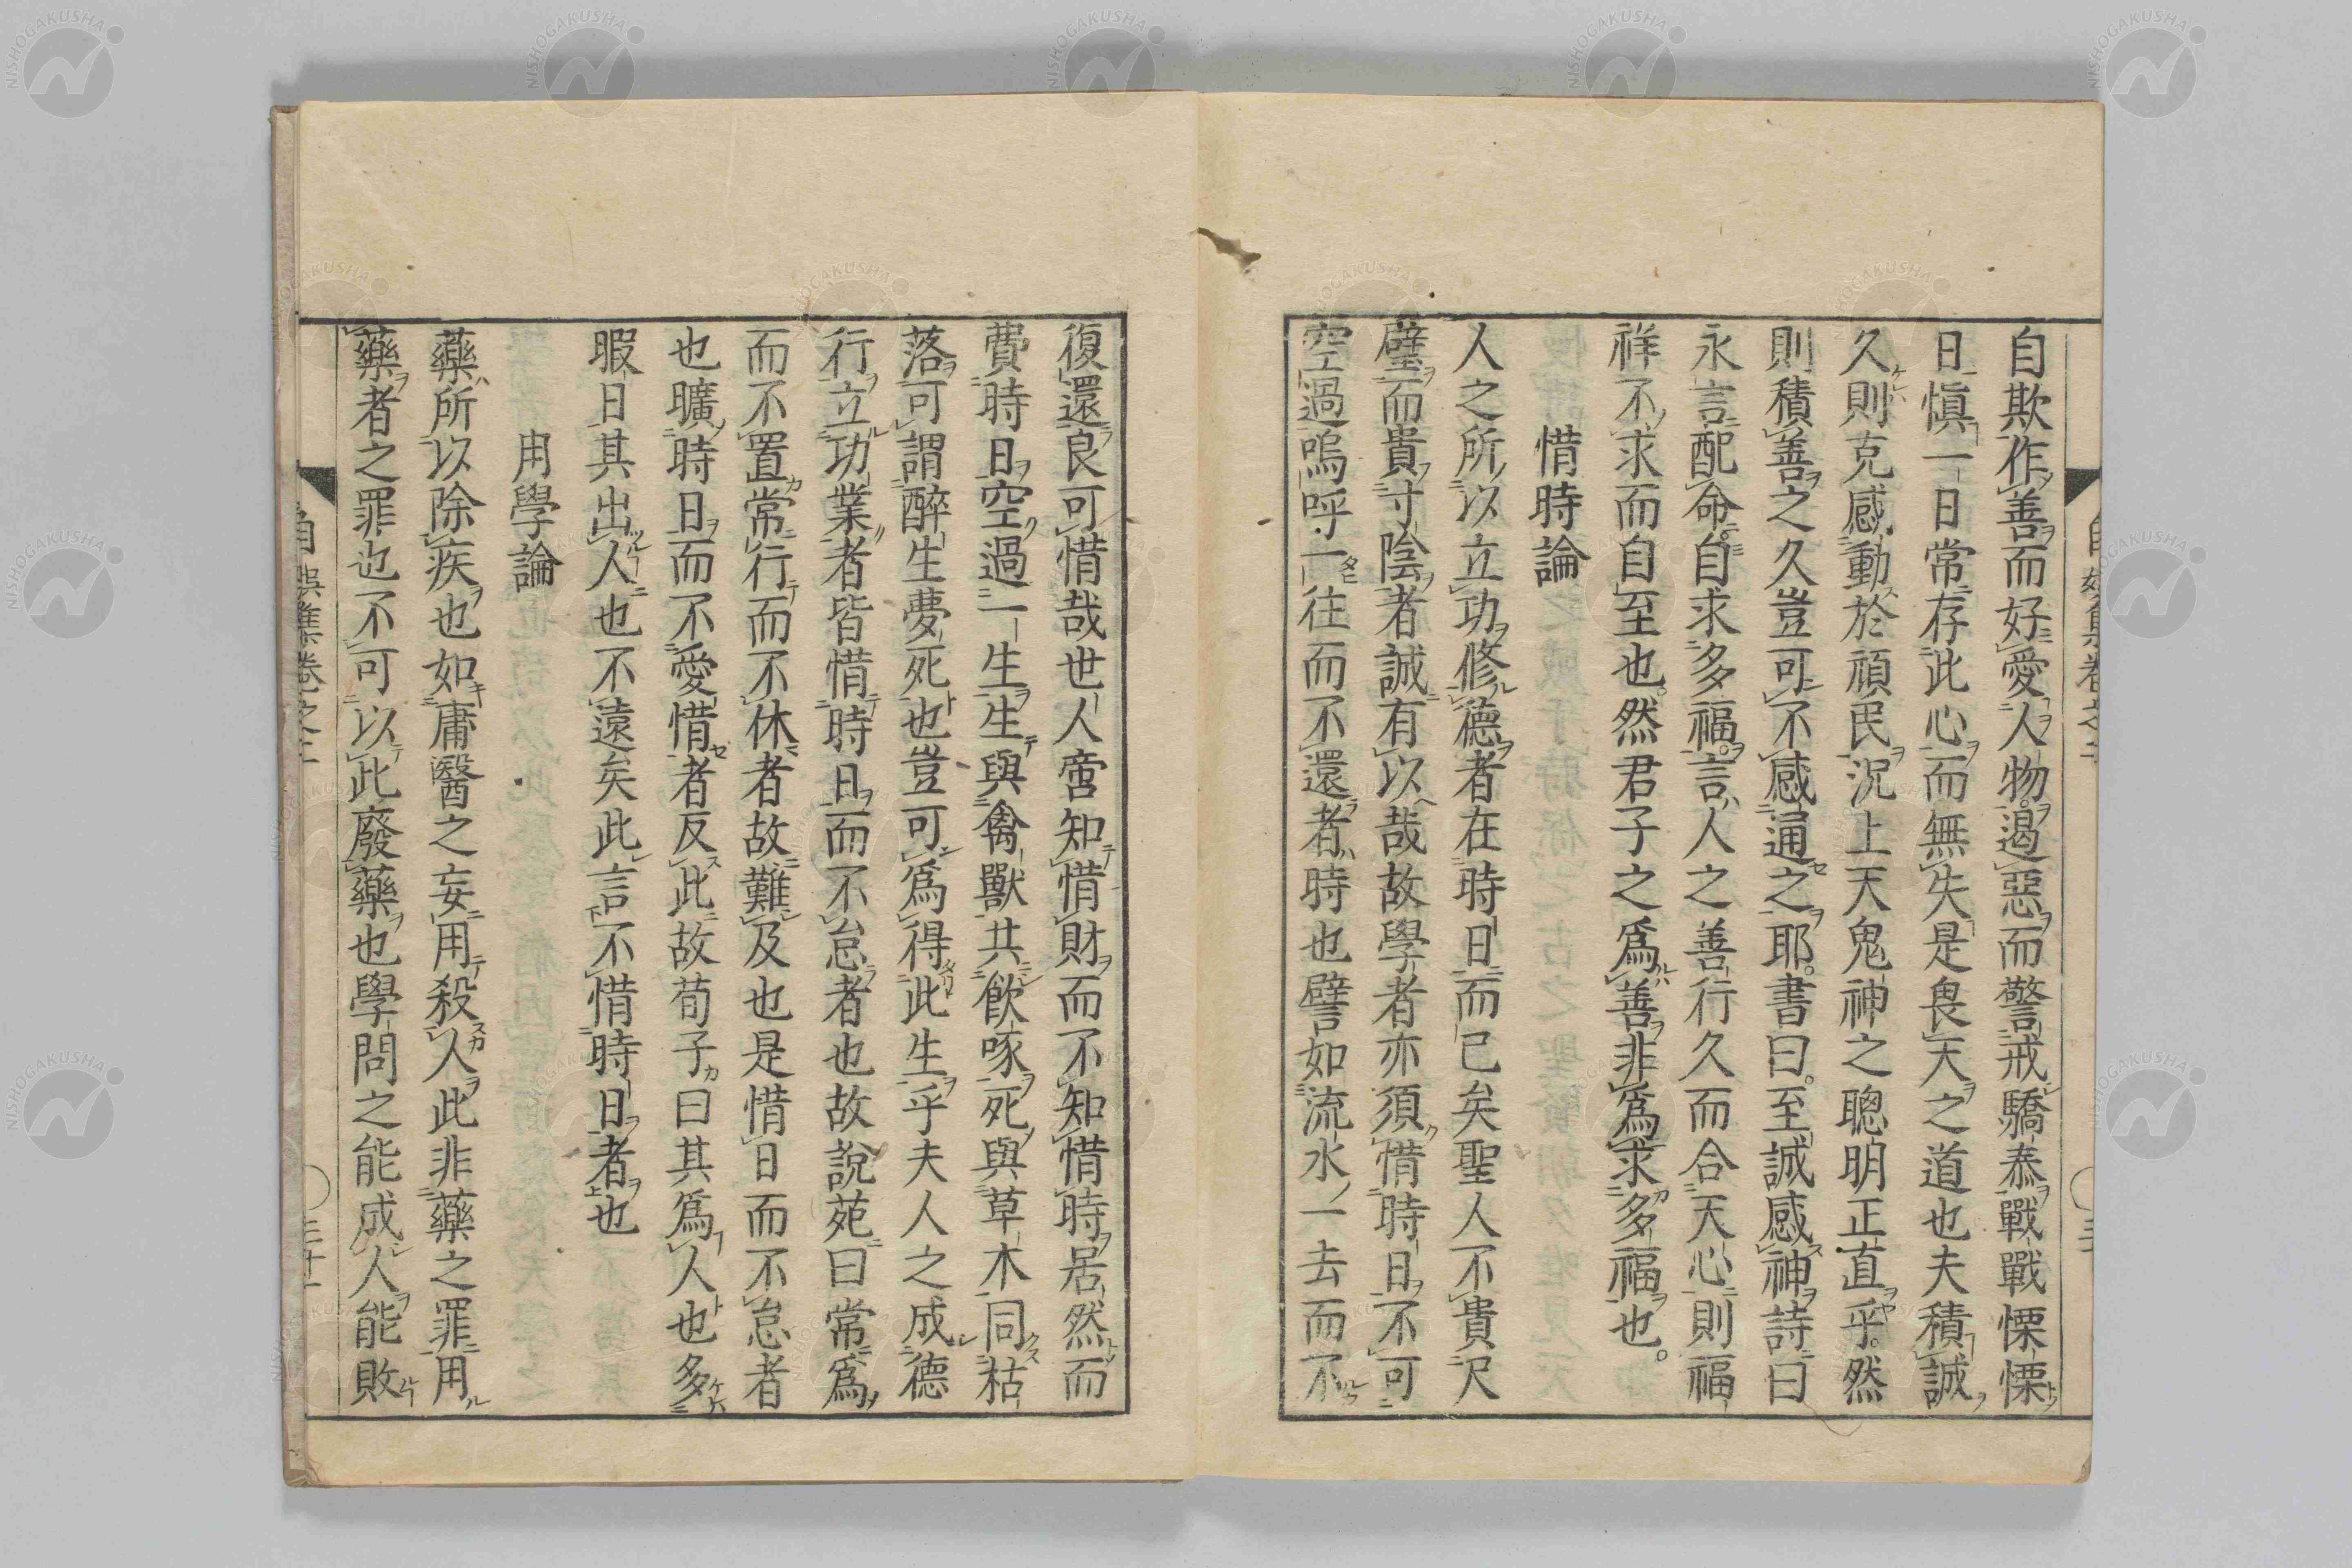 自欺作善而好愛人物遏惡而警戒驕泰戰戰慄慄
日愼一日常存此心而無失是畏天之道也夫積誠
久則克感動於頑民況上天鬼神之聰明正直乎然
則積善之久豈可不感通之耶書曰至誠感神詩曰
永言配命自求多福言人之善行久而合天心則福
祥不求而自至也然君子之爲善非爲求多福也
惜時論
人之所以立功修德者在時日而已矣聖人不貴尺
璧而貴寸陰者誠有以哉故學者亦須惜時日不可
空過嗚呼一往而不還者時也譬如流水一去而不
復還良可惜哉世人啻知惜財而不知惜時居然而
費時日空過一生生與禽獸共飮啄死與草木同枯
落可謂醉生夢死也豈可爲得此生乎夫人之成德
行立功業者皆惜時日而不怠者也故說苑曰常爲
而不置常行而不休者故難及也是惜日而不怠者
也曠時日而不愛惜者反此故荀子曰其爲人也多
暇日其出人也不遠矣此言不惜時日者也
用學論
藥所以除疾也如庸醫之妄用殺人此非藥之罪用
藥者之罪也不可以此廢藥也學問之能成人能敗
自娛集卷之二
三十一
NISHOGAKUSHA